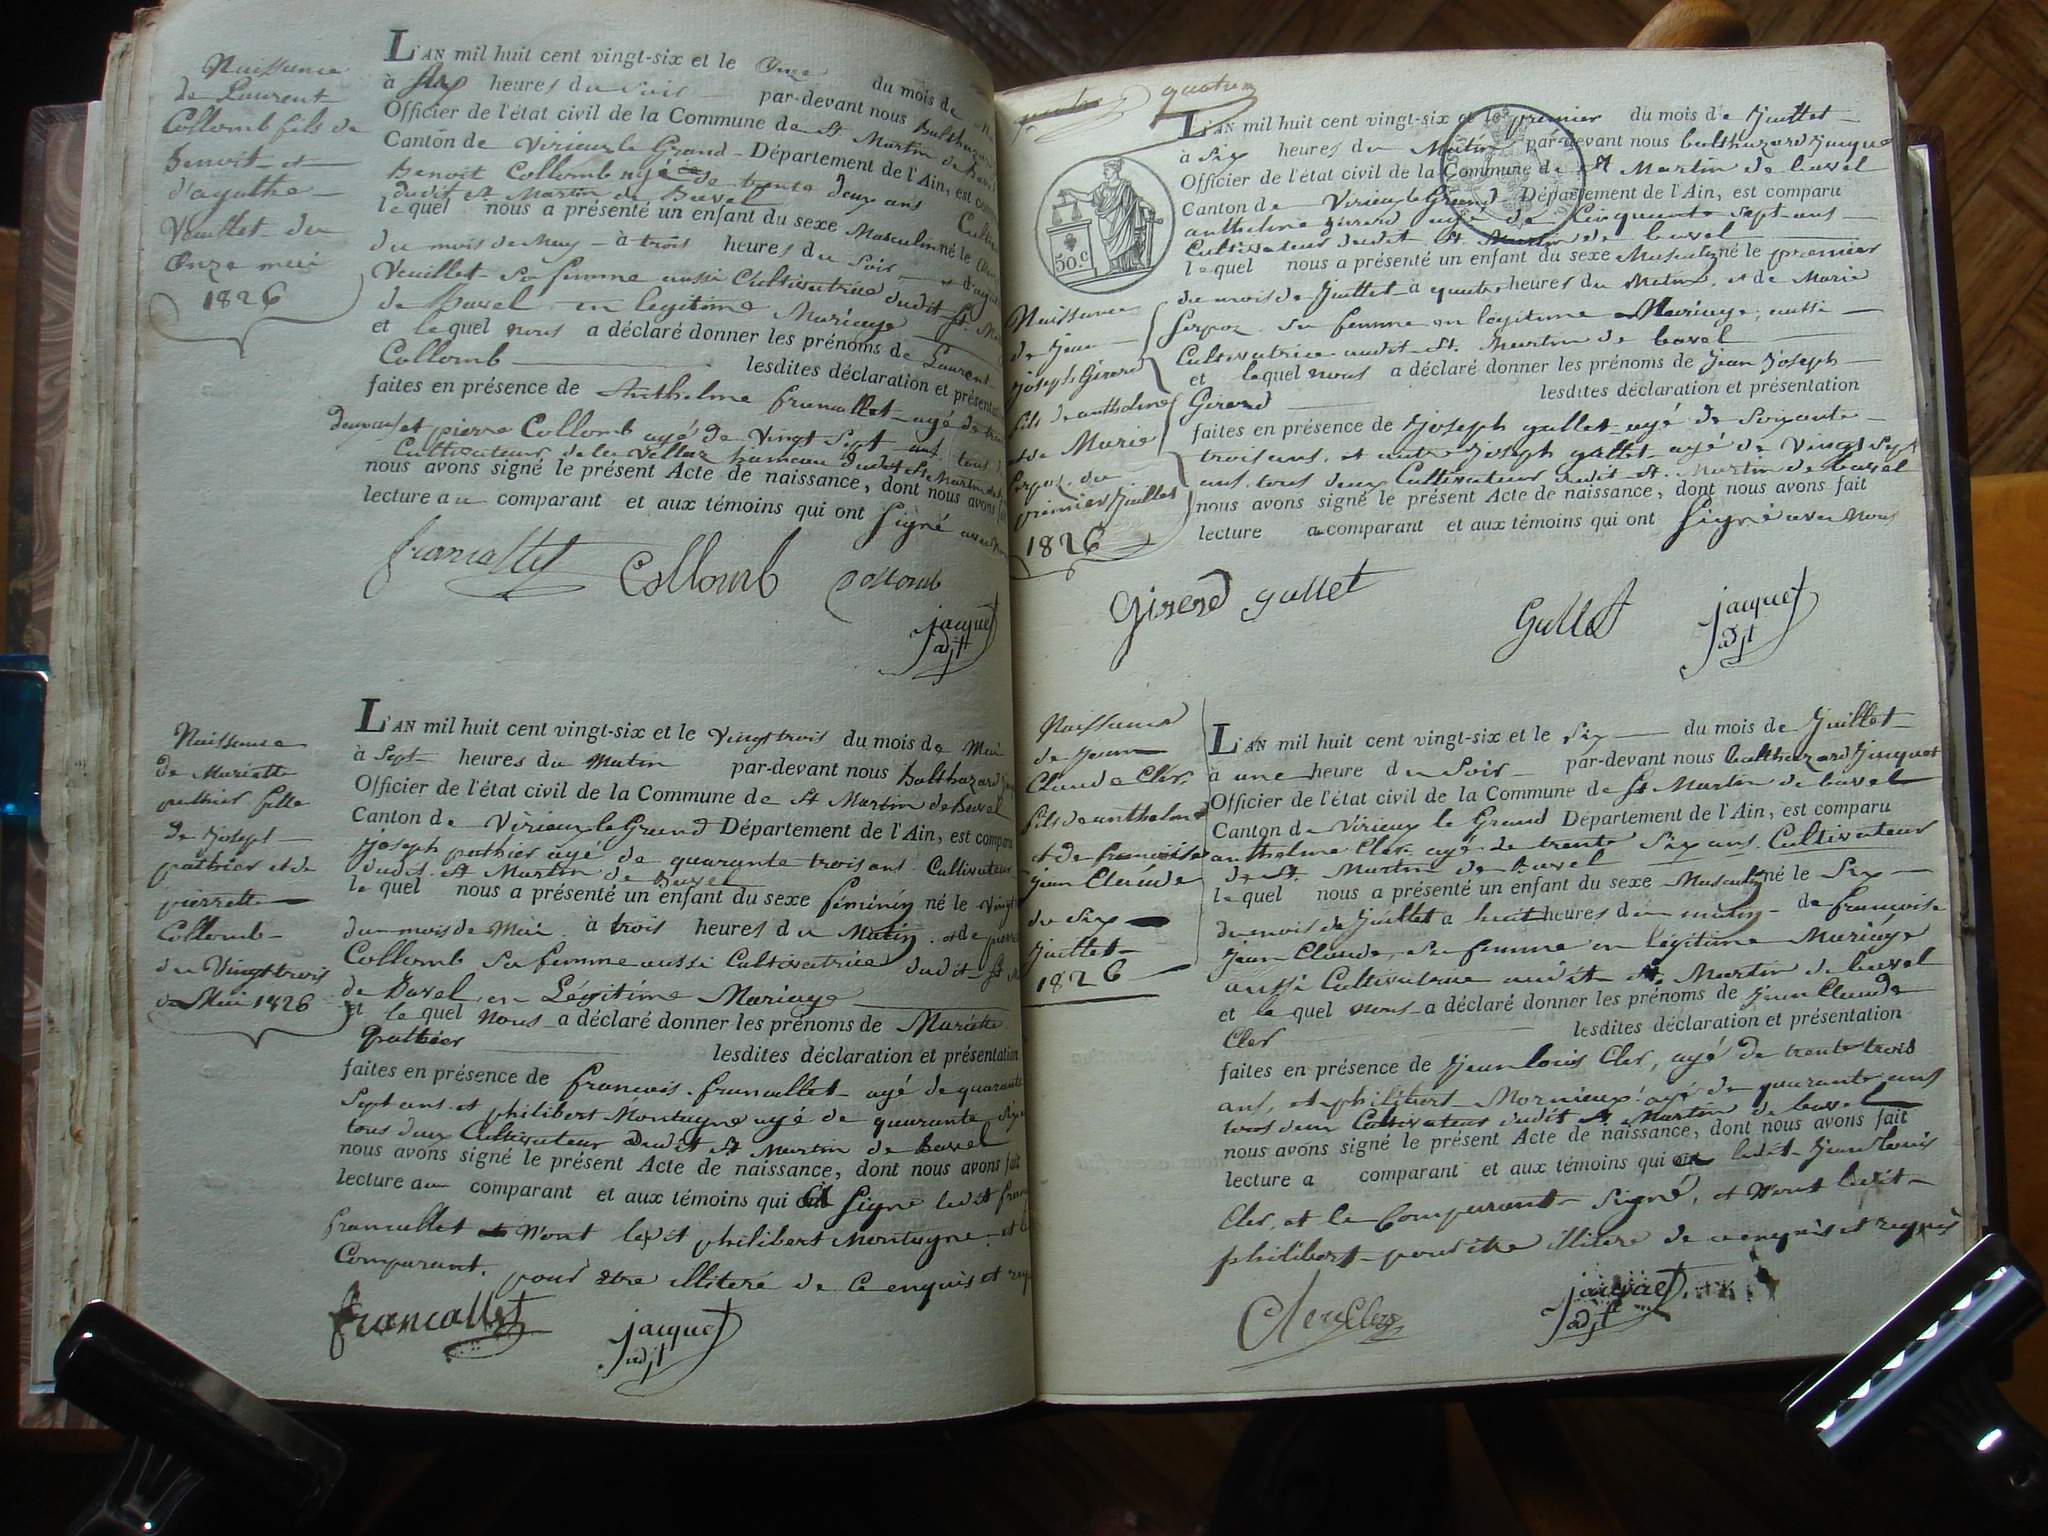 Naissance
de Laurent
Collomb fils de
Benoit et
d'agathe
Veuillet du
Onze mai
1826
L'AN mil huit cent vingt-six et le Onze du mois de
à Six heures du Soir par-devant nous Balthazard
Officier de l'état civil de la Commune de St Martin de Bavel
Canton de Virieux le Grand Département de l'Ain, est
Benoit Collomb agé de trente deux ans
dudit St Martin de Bavel
lequel nous a présenté un enfant du sexe Masculin né le
du mois de May à trois heures du Soir
Veuillet Sa femme aussi Cultivatrice dudit St
de Bavel en legitime Mariage
et lequel nous a déclaré donner les prénoms de Laurent
Collomb lesdites déclaration et
faites en présence de Anthelme francallet agé de
deux ans et pierre Collomb agé de Vingt Sept ans tous
Cultivateur de la Vellaz hameau dudit St Martin de
nous avons signé le présent Acte de naissance, dont nous avons fait
lecture au comparant et aux témoins qui ont Signé avec
francallet Collomb Collomb
jacquet
adjt
Naissance
de Mariette
pathier fille
de Josept
pathier et de
pierrette
Collomb
du Vingt trois
de Mai 1826
L'AN mil huit cent vingt-six et le Vingt trois du mois de Mai
à Sept heures du Matin par-devant nous Balthazard
Officier de l'état civil de la Commune de St Martin de Bavel
Canton de Virieux le Grand Département de l'Ain, est comparu
joseph pathier agé de quarante trois ans Cultivateur
dudit St Martin de Bavel
lequel nous a présenté un enfant du sexe féminin né le Vingt
du mois de Mai à trois heures du Matin et de
Collomb Sa femme aussi Cultivatrice dudit St
de Bavel en Légitime Mariage
et lequel Nous a déclaré donner les prénoms de Mariette
pathier lesdites déclaration et présentation
faites en présence de francois francallet agé de quarante
Sept ans et philibert Montagne agé de quarante
tous deux Cultivateur Dudit St Martin de Bavel
nous avons signé le présent Acte de naissance, dont nous avons fait
lecture au comparant et aux témoins qui a Signé ledit
francallet N'ont ledit philibert Montagne et
Comparant. pour être illiteré de ce enquis et
francallet
jacquet
adjt
quatre
50.c
Naissance
de Jean
joseph Girerd
fils de anthelme
et de Marie
Serpoz du
premier Juillet
1826
L'AN mil huit cent vingt-six et le premier du mois de Juillet
à Six heures du Matin par-devant nous balthazard Jacquet
Officier de l'état civil de la Commune de St Martin de bavel
Canton de Virieux le Grand Département de l'Ain, est comparu
anthelme Girerd agé de Cinquante Sept ans
Cultivateur dudit St Martin de bavel
lequel nous a présenté un enfant du sexe Masculin né le premier
du mois de Juillet à quatre heures du Matin, et de Marie
Serpoz sa femme en légitime Mariage, aussi
Cultivatrice audit St. Martin de bavel
et lequel nous a déclaré donner les prénoms de Jean Joseph
Girerd lesdites déclaration et présentation
faites en présence de Joseph gallet agé de Soixante
trois ans, et autre Joseph gallet agé de Vingt Sept
ans, tous deux Cultivateur dudit St. Martin de bavel
nous avons signé le présent Acte de naissance, dont nous avons fait
lecture au comparant et aux témoins qui ont Signé avec Nous
Girerd gallet Gallet jacquet
adjt
Naissance
de Jean
Claude Cler
fils de anthelme
et de francoise
jean Claude
du Six
Juillet
1826
L'AN mil huit cent vingt-six et le Six du mois de Juillet
à une heure du Soir par-devant nous balthazard Jacquet
Officier de l'état civil de la Commune de St Martin de bavel
Canton de Virieux le Grand Département de l'Ain, est comparu
anthelme Cler agé de trente Six ans Cultivateur
de St. Martin de Bavel
lequel nous a présenté un enfant du sexe Masculin né le Six
du mois de Juillet à huit heures du matin de francoise
jean Claude, sa femme en Légitime Mariage
aussi Cultivatrice audit St. Martin de bavel
et lequel nous a déclaré donner les prénoms de jean Claude
Cler lesdites déclaration et présentation
faites en présence de Jean louis Cler, agé de trente trois
ans, et philibert Mornieux agé de quarante ans
tous deux Cultivateur dudit St Martin de bavel
nous avons signé le présent Acte de naissance, dont nous avons fait
lecture a comparant et aux témoins qui ledit Jean louis
Cler, et le Comparant Signé, et N'ont ledit
philibert pour être illiteré de ce enquis et requis
Cler Cler
jacquet
adjt